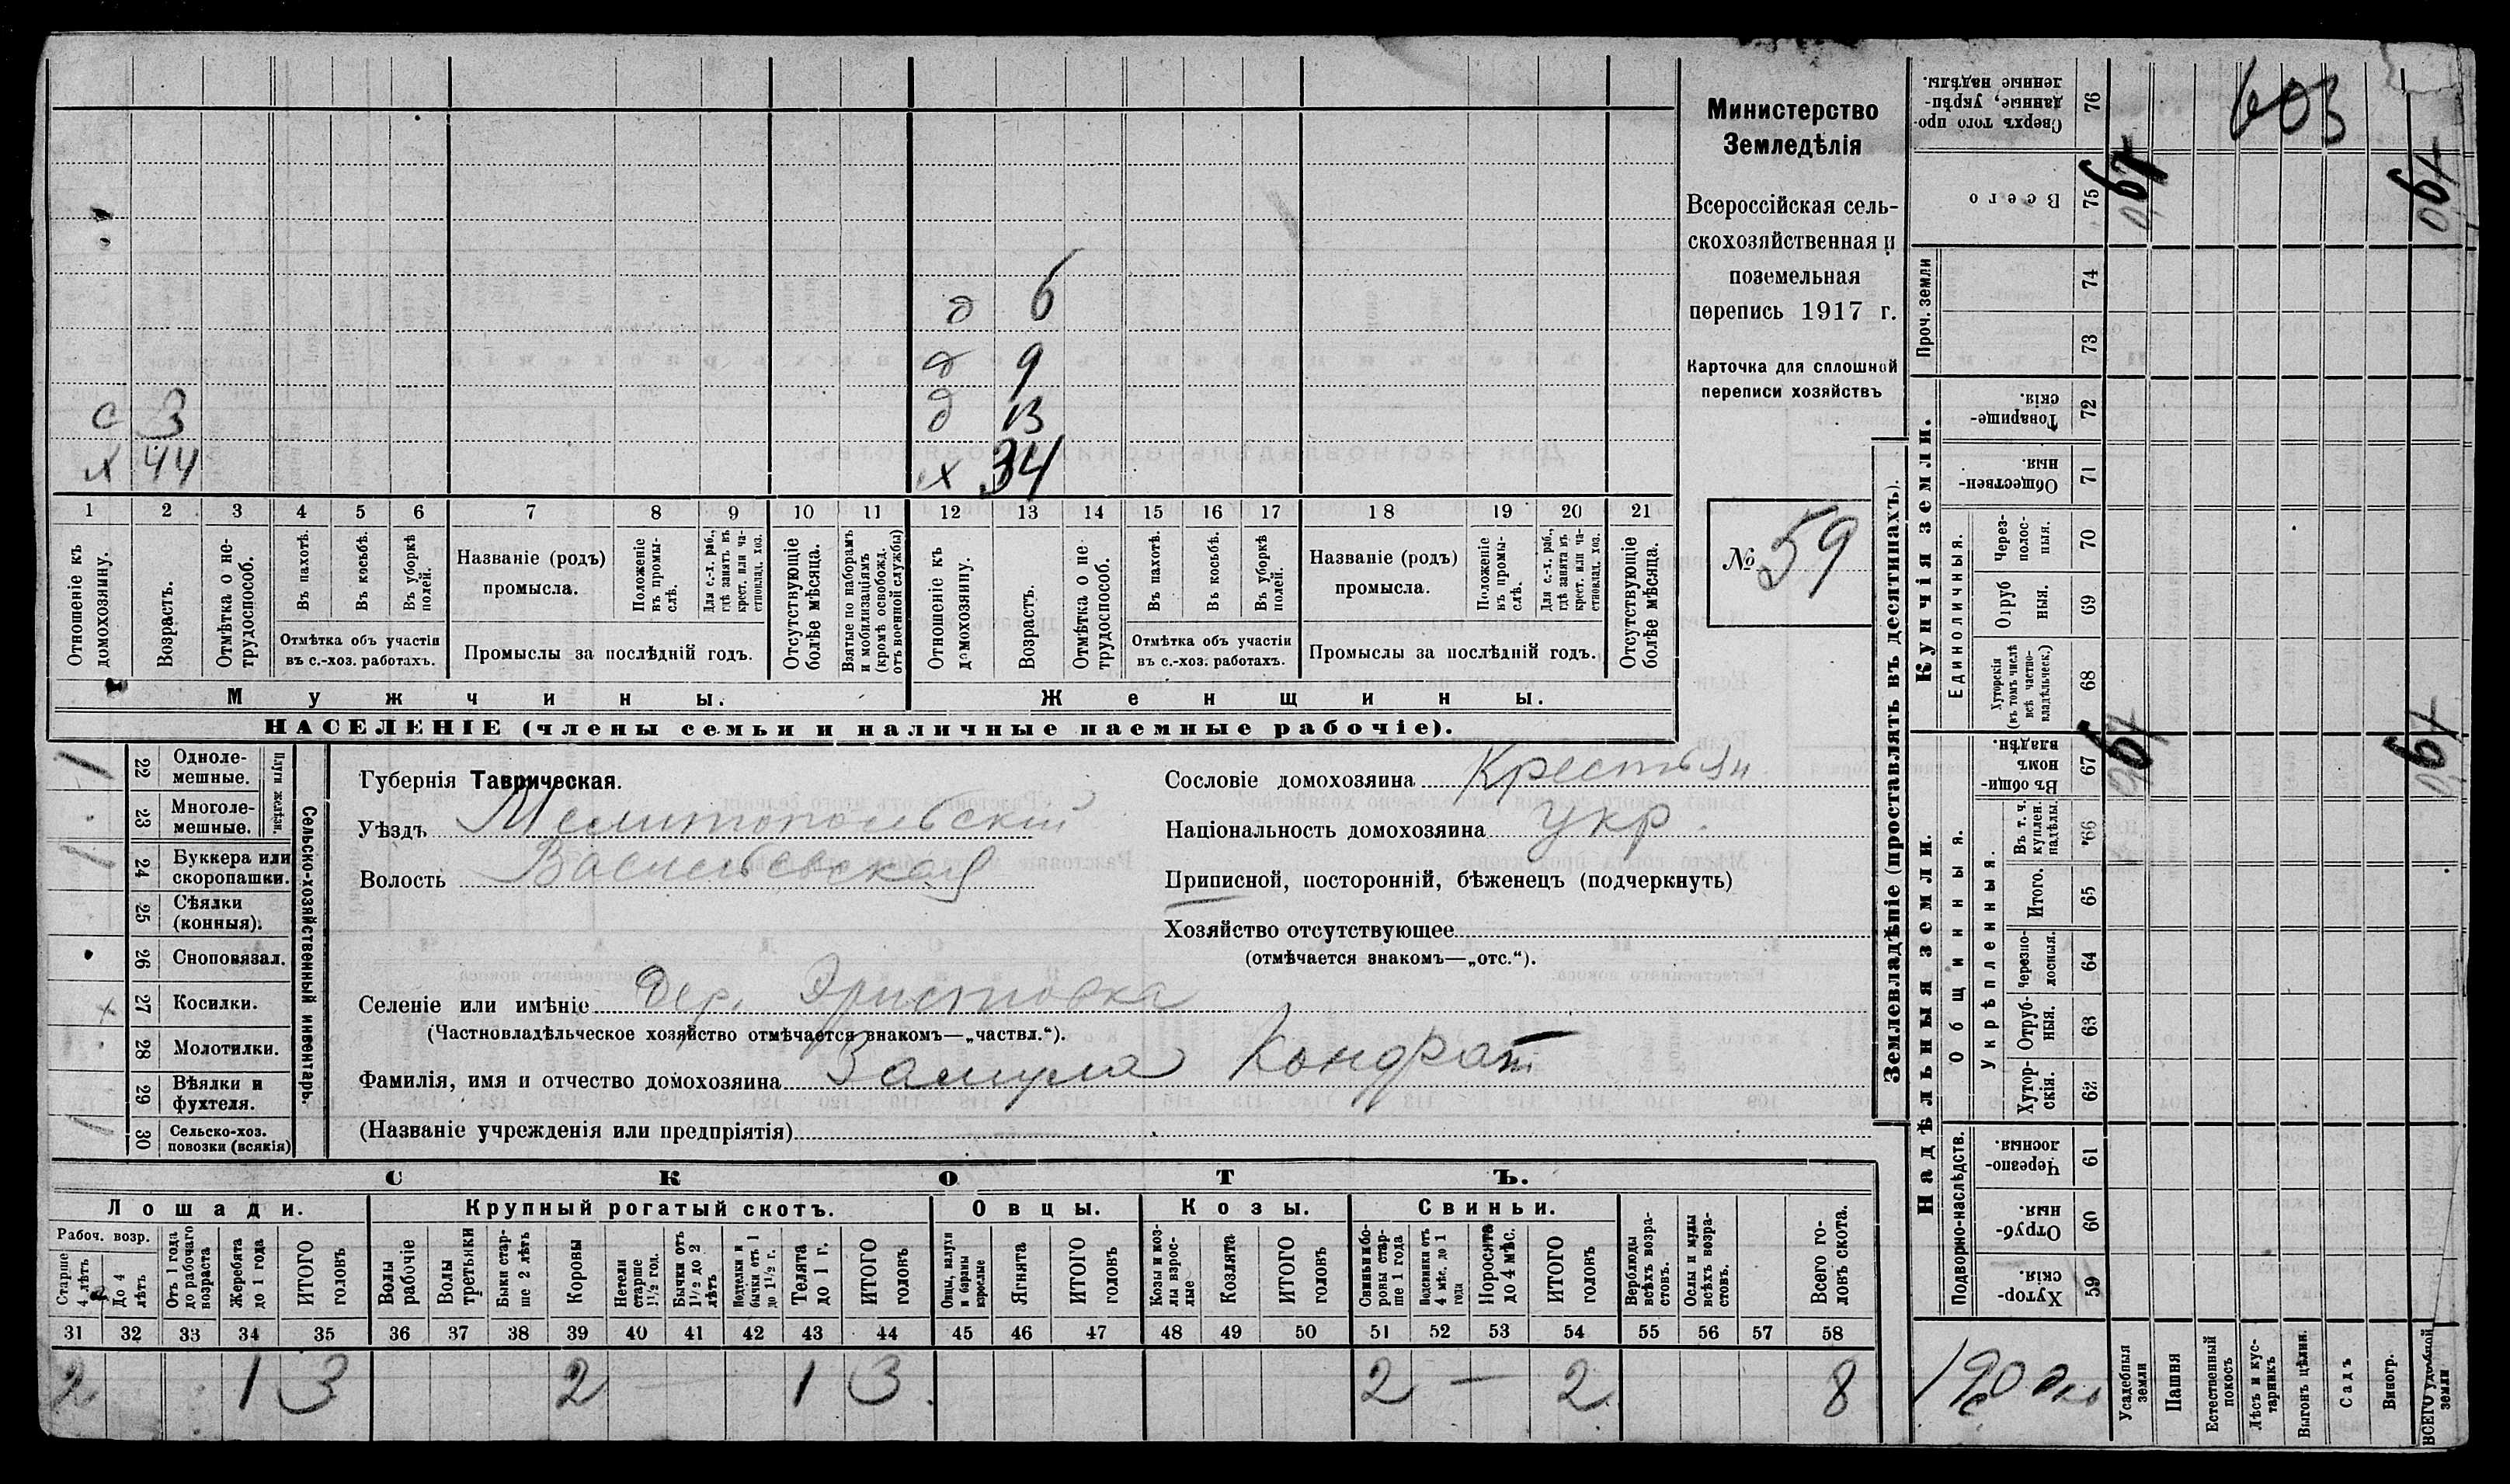 603
Министерство
Земледѣлія
Всероссійская сель-
скохозяйственная и
поземельная
перепись 1917 г.
Карточка для сплошной
переписи хозяйствъ
№ 59
д 6
д 9
с 3 д 13
х 44 х 34
1 2 3 4 5 6 7 8 9 10 11 12 13 14 15 16 17 18 19 20 21
Отношеніе къ домохозяину.
Возрастъ.
Отмѣтка о не-трудоспособ.
Въ пахотѣ.
Въ косьбѣ.
Въ уборкѣ полей.
Отмѣтка объ участіи
въ с.-хоз. работахъ.
Названіе (родъ)
промысла.
Положеніе въ промы-слѣ.
Для с.-х. раб., гдѣ занятъ въ крест. или ча-стновлад. хоз.
Промыслы за послѣдній годъ.
Отсутствующіе болѣе мѣсяца.
Взятые по наборамъ и мобилизаціямъ (кромѣ освобожд. отъ военной службы)
Отношеніе къ домохозяину.
Возрастъ.
Отмѣтка о не трудоспособ.
Въ пахотѣ.
Въ косьбѣ.
Въ уборкѣ полей.
Отмѣтка объ участіи
въ с.-хоз. работахъ.
Названіе (родъ)
промысла.
Положеніе въ промы-слѣ.
Для с.-х. раб., гдѣ занята въ крест. или ча-стновлад. хоз.
Промыслы за послѣдній годъ.
Отсутствующіе болѣе мѣсяца.
Мужчины. Женщины.
НАСЕЛЕНІЕ (члены семьи и наличные наемные рабочіе).
Сельско-хозяйственный инвентарь.
Плуги желѣзн.
22 Одноле-мешные. 1
23 Многоле-мешные.
24 Буккера или скоропашки. 1
25 Сѣялки (конныя).
26 Сноповязал.
27 Косилки.
28 Молотилки.
29 Вѣялки и фухтеля.
30 Сельско-хоз. повозки (всякія) 1
Губернія Таврическая.
Уѣздъ Мелитопольскій
Волость Васильевская
Сословіе домохозяина Крестьян.
Національность домохозяина укр.
Приписной, посторонній, бѣженецъ (подчеркнуть)
Хозяйство отсутствующее
(отмѣчается знакомъ—„отс.“).
Селеніе или имѣніе Дер. Эристовка
(Частновладѣльческое хозяйство отмѣчается знакомъ—„частвл.“).
Фамилія, имя и отчество домохозяина Замула Кондрат
(Названіе учрежденія или предпріятія)
СКОТЪ.
Лошади. Крупный рогатый скотъ. Овцы. Козы. Свиньи.
Рабоч. возр.
Старше 4 лѣтъ
До 4 лѣтъ
Отъ 1 года до рабочаго возраста
Жеребята до 1 года
ИТОГО головъ
Волы рабочіе
Волы третьяки
Быки стар-ше 2 лѣтъ
Коровы
Нетели старше 1½ год.
Бычки отъ 1½ до 2 лѣтъ
Подтелки и бычки отъ 1 до 1½ г.
Телята до 1 г.
ИТОГО головъ
Овцы, валухи и бараны взрослые
Ягнята
ИТОГО головъ
Козы и коз-лы взрос-лые
Козлята
ИТОГО головъ
Свиньи и бо-ровы стар-ше 1 года
Подсвинки отъ 4 мѣс. до 1 года
Поросята до 4 мѣс.
ИТОГО головъ
Верблюды всѣхъ возра-стовъ.
Ослы и мулы всѣхъ возра-стовъ.
Всего го-ловъ скота.
31 32 33 34 35 36 37 38 39 40 41 42 43 44 45 46 47 48 49 50 51 52 53 54 55 56 57 58
2 1 3 2 — 1 3 2 — 2 8
Землевладѣніе (проставлять въ десятинахъ).
Купчія земли.
Надѣльныя земли.
Сверхъ того про-данные, укрѣп-ленные надѣлы. 76
Всего 75
Проч. земли 74 73
Товарище-скія. 72
Обществен-ныя. 71
Единоличныя.
Через-полос-ныя. 70
Отруб ныя. 69
Хуторскія (въ томъ числѣ всѣ частно-владѣльческ.) 68
Общинныя.
Въ общи-номъ владѣн. 67
Укрѣпленныя.
Въ т. ч. куплен. надѣлы. 66
Итого. 65
Черезпо-лосныя. 64
Отруб-ныя. 63
Хутор-скія. 62
Подворно-наслѣдств.
Черезпо-лосныя. 61
Отруб-ныя. 60
Хутор-скія. 59
Усадебныя земли
Пашня
Естественный покосъ
Лѣсъ и кус-тарникъ
Выгонъ цѣлин.
Садъ
Виногр.
ВСЕГО удобной земли